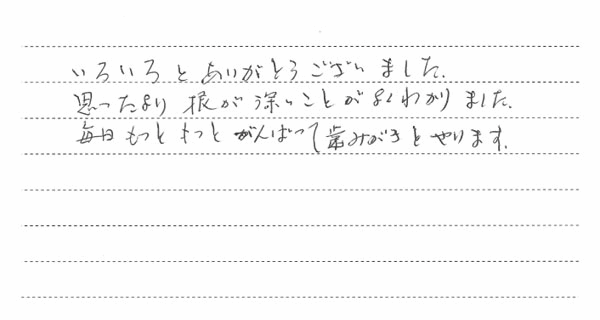 いろいろとありがとうございました.
思ったより根が深いことがよくわかりました.
毎日もっともっとがんばって歯みがきとやります.